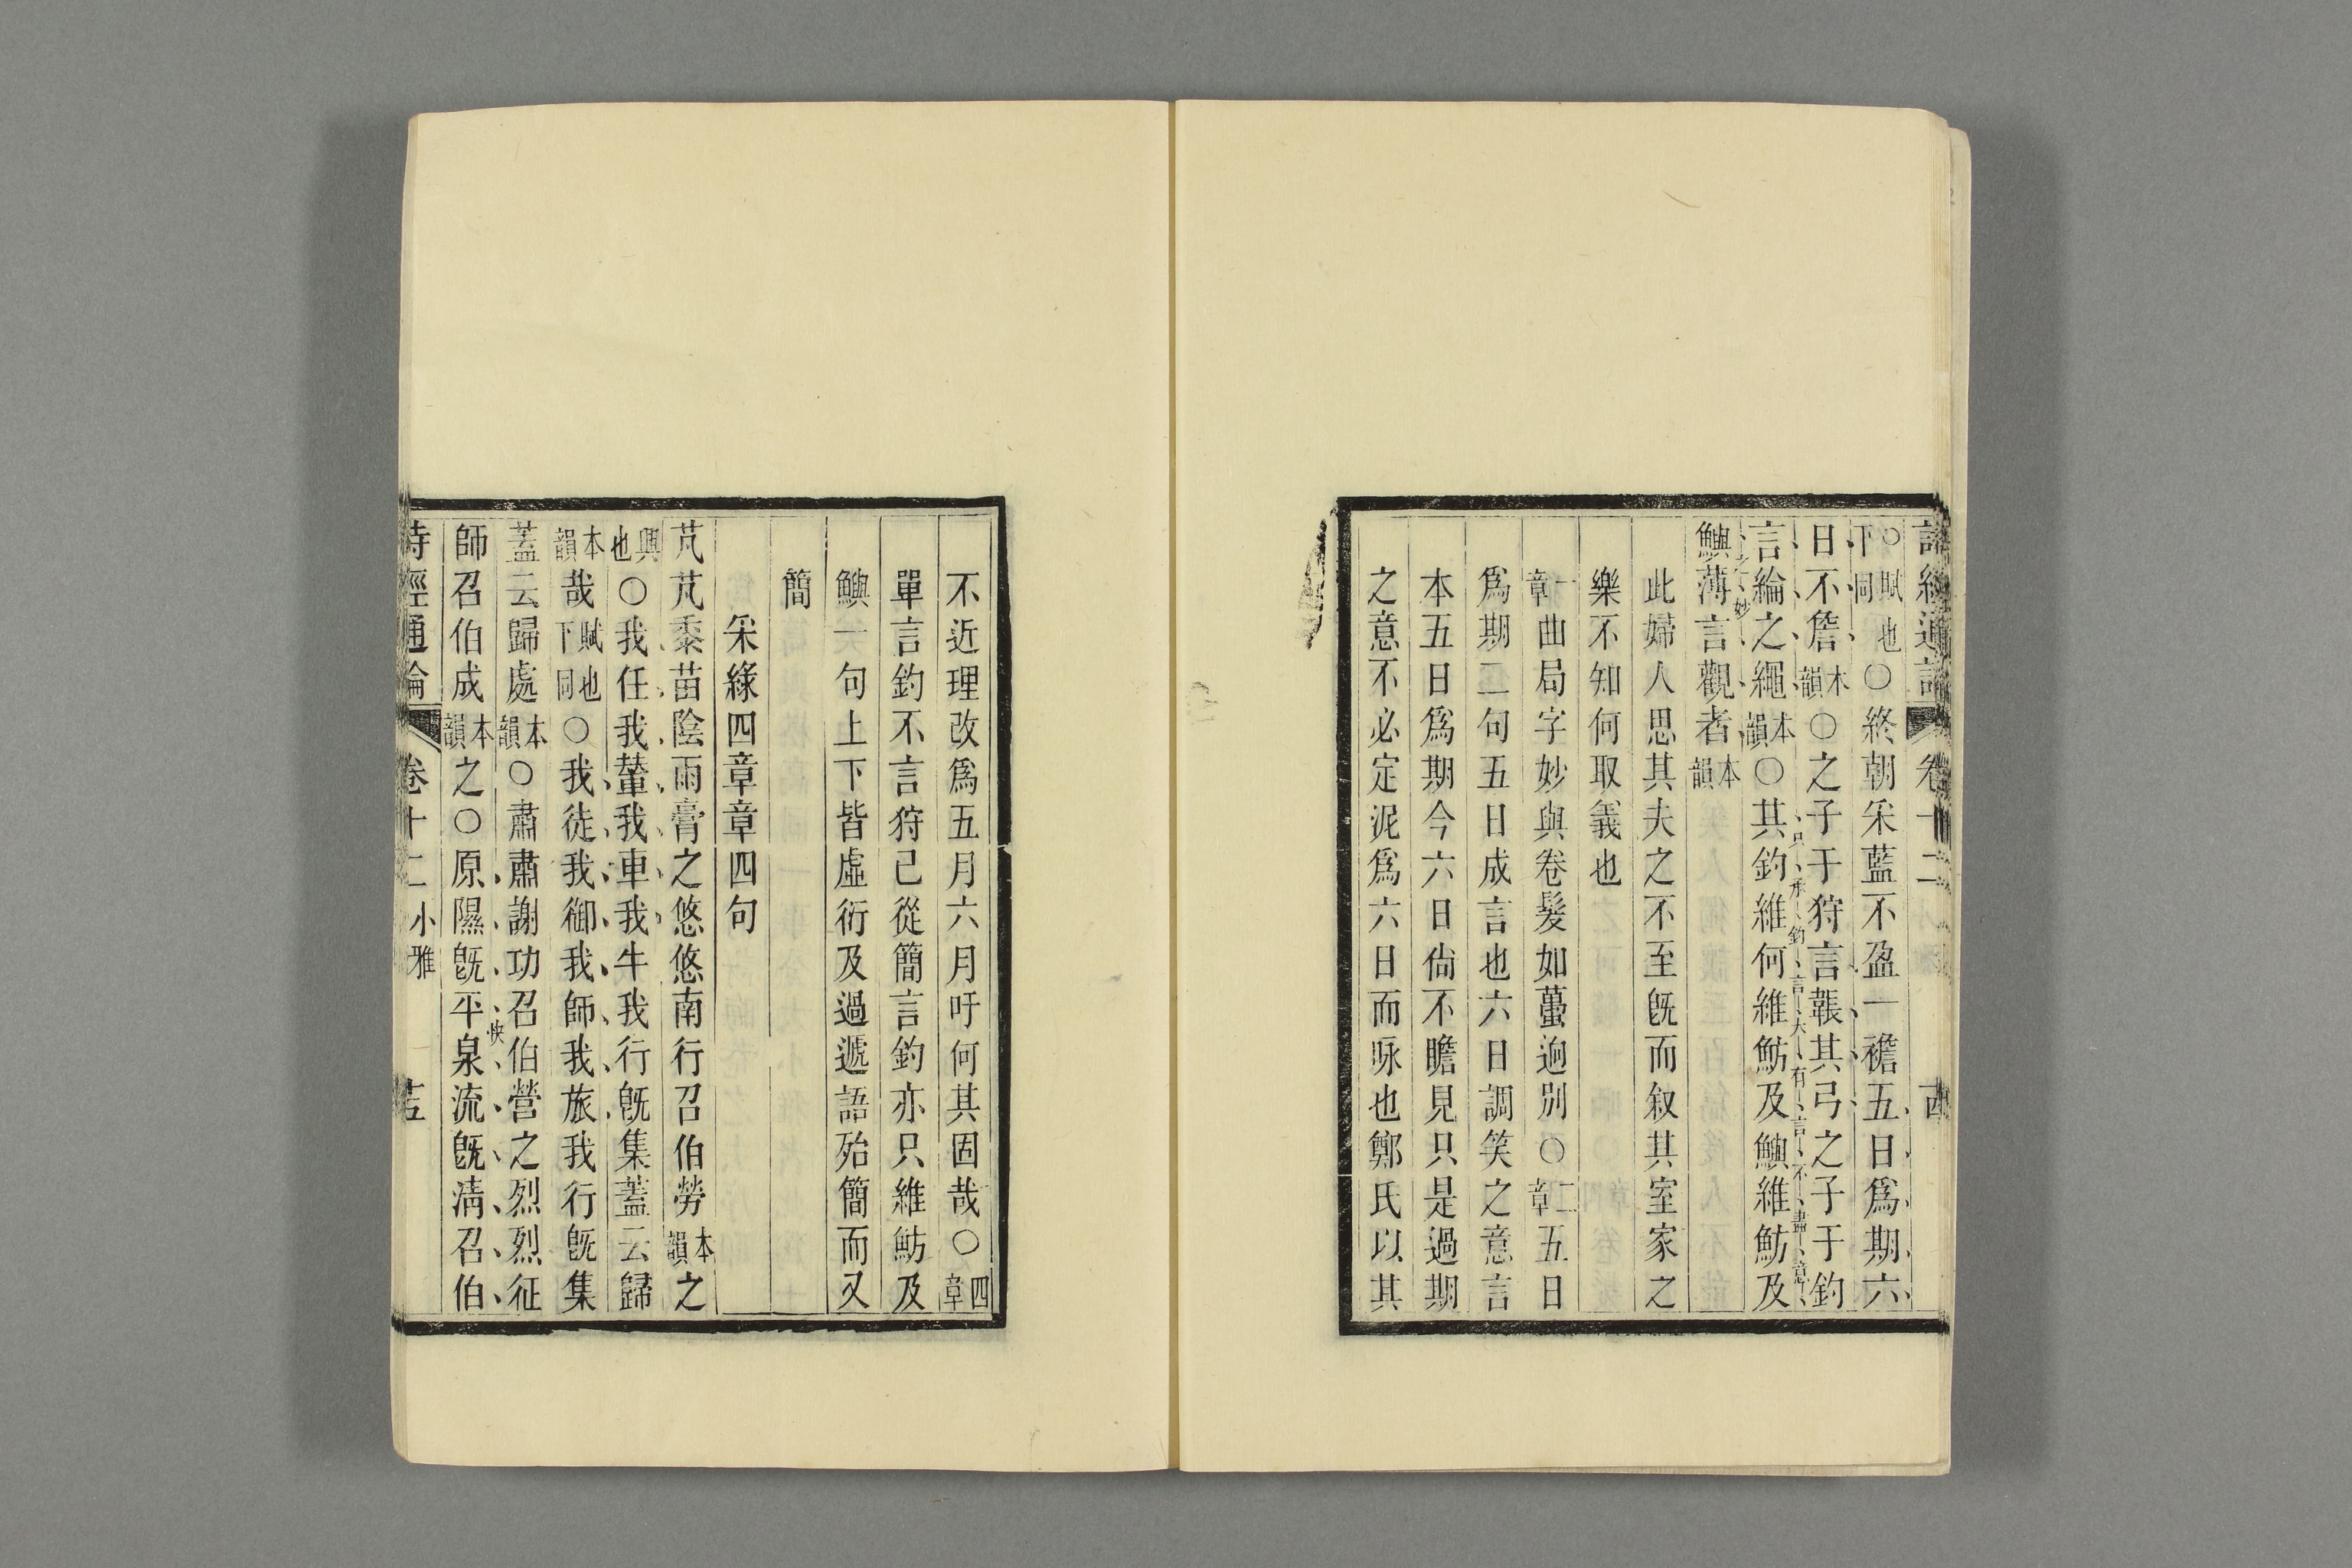 詩經通論 卷十二
○賦也下同○終朝采藍不盈一襜五日爲期六
日不詹本韻○之子于狩言韔其弓之子于釣
只承釣言大有言不盡意
言綸之繩本韻○其釣維何維魴及鱮維魴及
之妙
鱮薄言觀者本韻
此婦人思其夫之不至旣而叙其室家之
樂不知何取義也
一章曲局字妙與卷髮如蠆逈別○二章五日
爲期二句五日成言也六日調笑之意言
本五日爲期今六日尙不瞻見只是過期
之意不必定泥爲六日而咏也鄭氏以其
不近理改爲五月六月吁何其固哉○四章
單言釣不言狩已從簡言釣亦只維魴及
鱮一句上下皆虛衍及過遞語殆簡而又
簡
采綠四章章四句
芃芃黍苗陰雨膏之悠悠南行召伯勞本韻之
興也○我任我輦我車我牛我行旣集蓋云歸
哉本韻賦也下同○我徒我御我師我旅我行旣集
蓋云歸處本韻○肅肅謝功召伯營之烈烈征
快
師召伯成本韻之○原隰旣平泉流旣淸召伯
詩經通論 卷十二 小雅